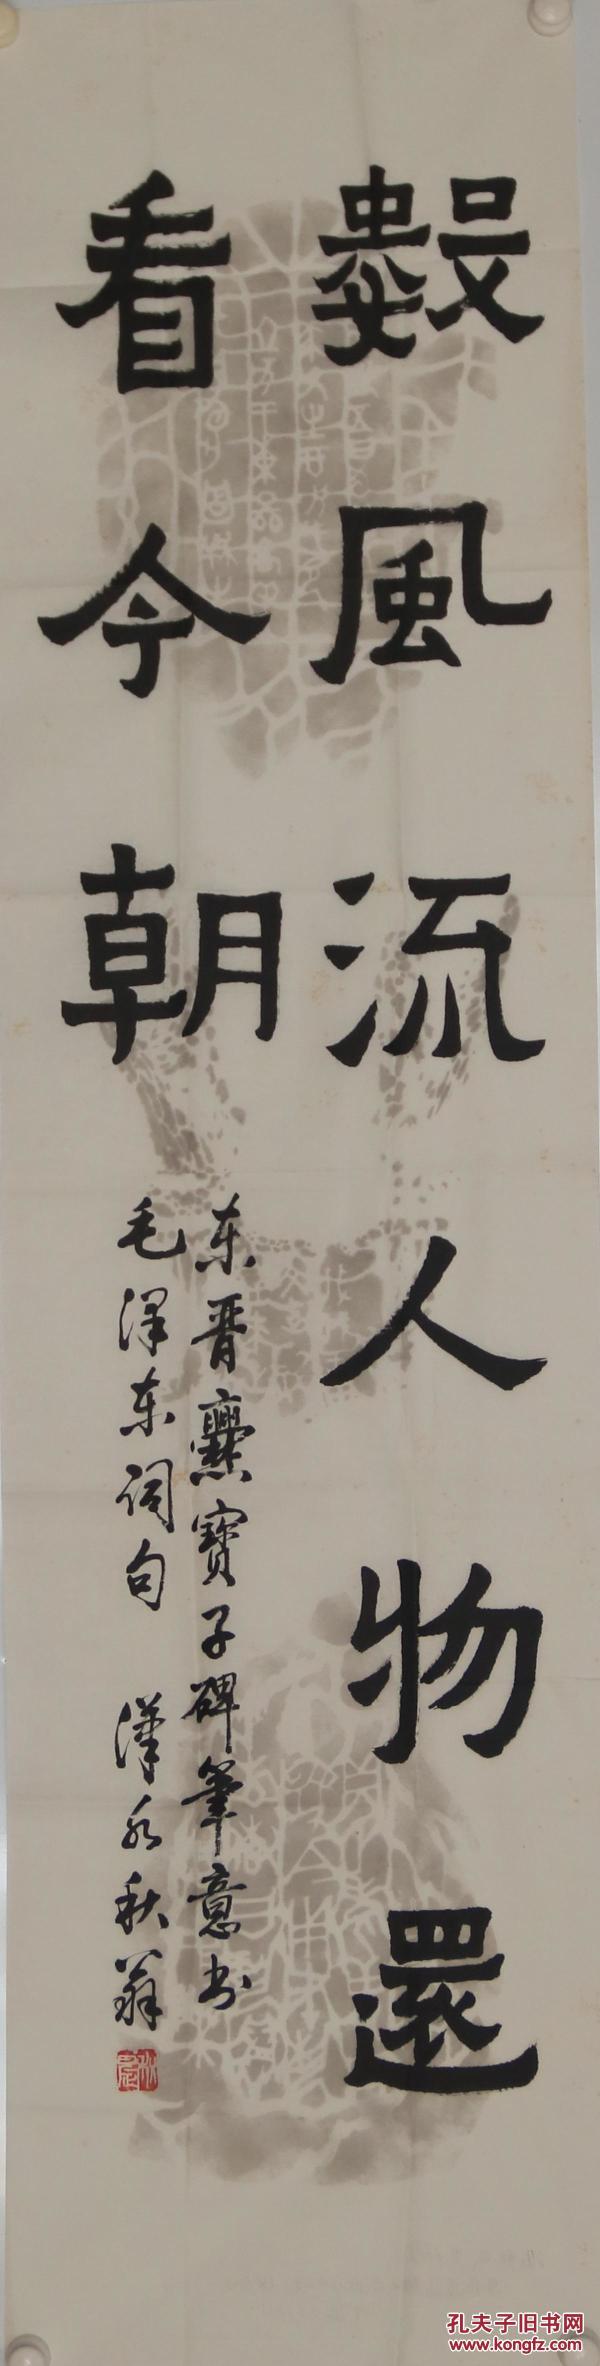 數風流人物還
看今朝
东晋爨寳子碑筆意书
毛泽东词句 漢水秋翁
孔夫子旧书网
www.kongfz.com